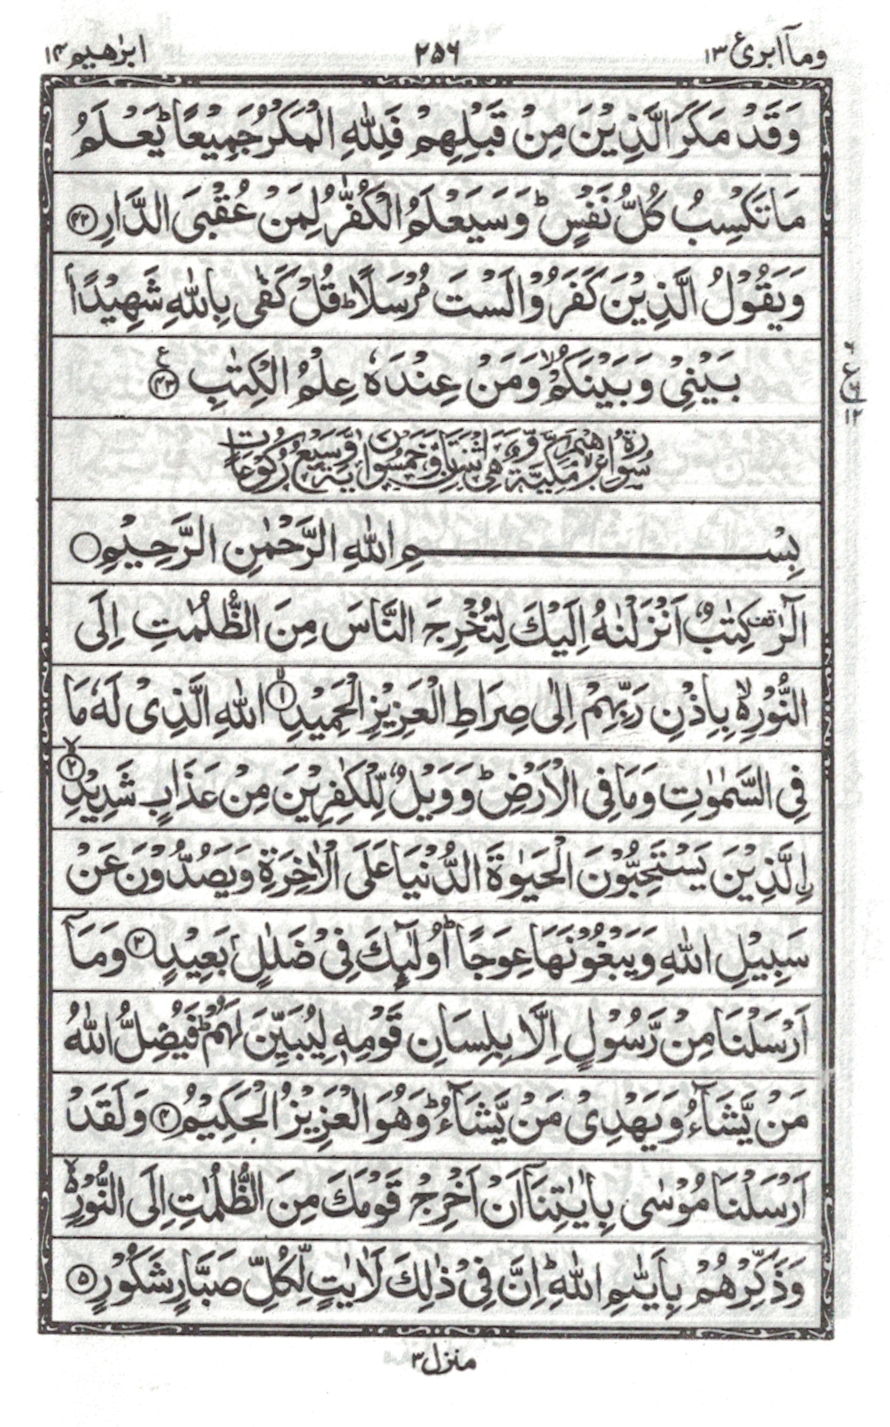 وماۤ ابرئ ۱۳ ۲۵۶ ابرٰهیم ۱۴
وَقَدْ مَكَرَ الَّذِیْنَ مِنْ قَبْلِهِمْ فَلِلّٰهِ الْمَكْرُ جَمِیْعًا ؕ یَعْلَمُ
مَا تَكْسِبُ كُلُّ نَفْسٍ ؕ وَسَیَعْلَمُ الْكُفّٰرُ لِمَنْ عُقْبَی الدَّارِ ﴿۴۲﴾
وَیَقُوْلُ الَّذِیْنَ كَفَرُوْا لَسْتَ مُرْسَلًا ؕ قُلْ كَفٰی بِاللّٰهِ شَهِیْدًۢا
بَیْنِیْ وَبَیْنَكُمْ ۙ وَمَنْ عِنْدَهٗ عِلْمُ الْكِتٰبِ ﴿۴۳﴾ ع
سُوْرَةُ اِبْرٰهِیْمَ مَكِّیَّةٌ وَّهِیَ اثْنَتَانِ وَّخَمْسُوْنَ اٰیَةً وَّسَبْعُ رُكُوْعَاتٍ
بِسْمِ اللّٰهِ الرَّحْمٰنِ الرَّحِیْمِ
الٓرٰ ۟ كِتٰبٌ اَنْزَلْنٰهُ اِلَیْكَ لِتُخْرِجَ النَّاسَ مِنَ الظُّلُمٰتِ اِلَی
النُّوْرِ ۙ۬ بِاِذْنِ رَبِّهِمْ اِلٰی صِرَاطِ الْعَزِیْزِ الْحَمِیْدِ ۙ﴿۱﴾ اللّٰهِ الَّذِیْ لَهٗ مَا
فِی السَّمٰوٰتِ وَمَا فِی الْاَرْضِ ؕ وَوَیْلٌ لِّلْكٰفِرِیْنَ مِنْ عَذَابٍ شَدِیْدِ ۙ﴿۲﴾
ِۣالَّذِیْنَ یَسْتَحِبُّوْنَ الْحَیٰوةَ الدُّنْیَا عَلَی الْاٰخِرَةِ وَیَصُدُّوْنَ عَنْ
سَبِیْلِ اللّٰهِ وَیَبْغُوْنَهَا عِوَجًا ؕ اُولٰٓئِكَ فِیْ ضَلٰلٍۭ بَعِیْدٍ ﴿۳﴾ وَمَاۤ
اَرْسَلْنَا مِنْ رَّسُوْلٍ اِلَّا بِلِسَانِ قَوْمِهٖ لِیُبَیِّنَ لَهُمْ ؕ فَیُضِلُّ اللّٰهُ
مَنْ یَّشَآءُ وَیَهْدِیْ مَنْ یَّشَآءُ ؕ وَهُوَ الْعَزِیْزُ الْحَكِیْمُ ﴿۴﴾ وَلَقَدْ
اَرْسَلْنَا مُوْسٰی بِاٰیٰتِنَاۤ اَنْ اَخْرِجْ قَوْمَكَ مِنَ الظُّلُمٰتِ اِلَی النُّوْرِ ۙ۬
وَذَكِّرْهُمْ بِاَیّٰىمِ اللّٰهِ ؕ اِنَّ فِیْ ذٰلِكَ لَاٰیٰتٍ لِّكُلِّ صَبَّارٍ شَكُوْرٍ ﴿۵﴾
منزل ۳